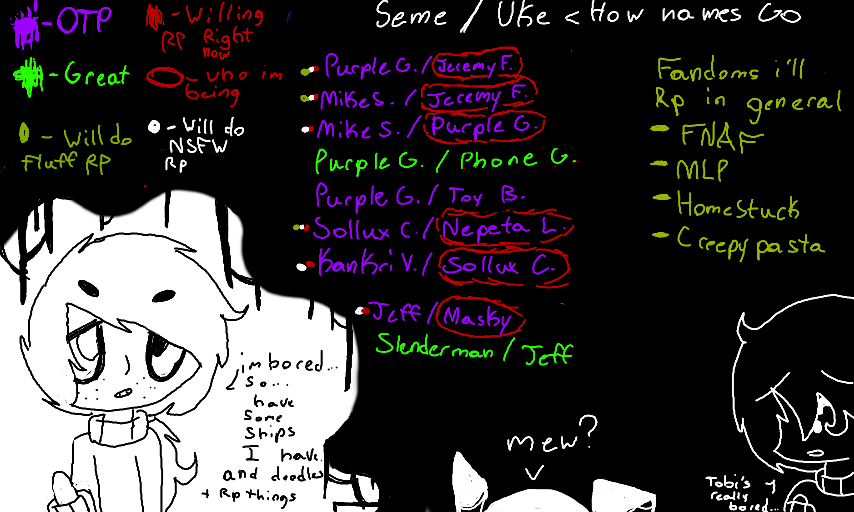 - OTP
- Willing
RP Right
now
Seme / Uke < How names Go
- Great
- who im
being
- Will do
fluff RP
- Will do
NSFW
RP
Purple G. / Jeremy F.
Mike S. / Jeremy F.
Mike S. / Purple G.
Purple G. / Phone G.
Purple G. / Toy B.
Sollux C. / Nepeta L.
Kankri V. / Sollux C.
Jeff / Masky
Slenderman / Jeff
Fandoms i'll
Rp in general
- FNAF
- MLP
- Homestuck
- Creepypasta
im bored...
so...
have
some
ships
I have
and doodles
+ Rp things
mew?
Tobi's
really
bored...